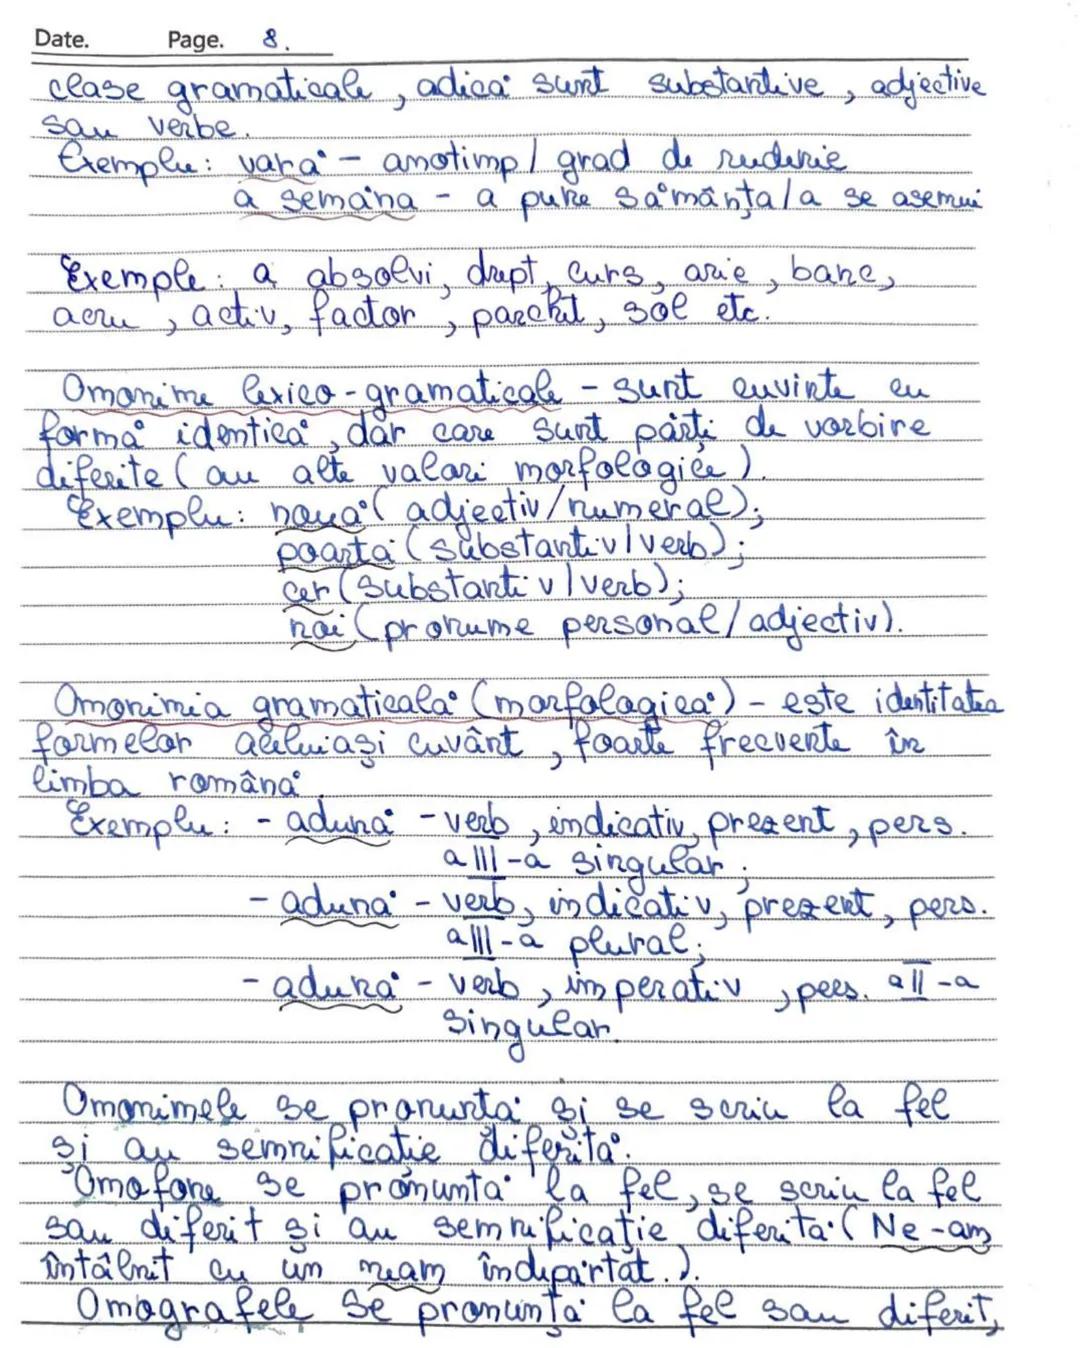 Date. Page. 8.
clase gramaticale, adică sunt substantive, adjective
sau verbe.
Exemplu: vară - anotimp / grad de rudenie
a semăna - a pune sămânță/a se asemui
Exemple: a absolvi, drept, curs, arie, banc,
acru, activ, factor, parchet, sol etc.
Omonime lexico-gramaticale - sunt cuvinte cu
formă identică, dar care sunt părți de vorbire
diferite (au alte valori morfologice).
Exemplu: nouă (adjectiv/numeral);
poartă (substantiv/verb);
cer (substantiv/verb);
noi (pronume personal/adjectiv).
Omonimia gramaticală (morfologică) - este identitatea
formelor aceluiași cuvânt, foarte frecvente în
limba română
Exemplu: - adună - verb, indicativ, prezent, pers.
a III-a singular;
- adună - verb, indicativ, prezent, pers.
a III-a plural;
- adună - verb, imperativ, pers. a II-a
singular.
Omonimele se pronunță și se scriu la fel
și au semnificație diferită.
Omofone se pronunță la fel, se scriu la fel
sau diferit și au semnificație diferită (Ne-am
întâlnit cu un neam îndepărtat.).
Omografele se pronunță la fel sau diferit,